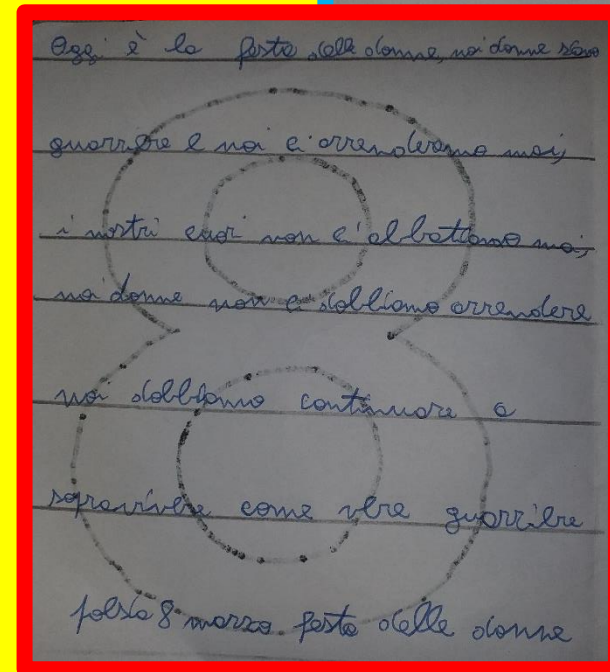 Oggi è la festa delle donne, noi donne siamo
guorriere e noi ci arrenderemo mai,
i nostri cuori non ci abbattono mai,
noi donne non ci dobbiamo arrendere
noi dobbiamo continuare a
sopravivere come vere guorriere
8 marzo festa delle donne